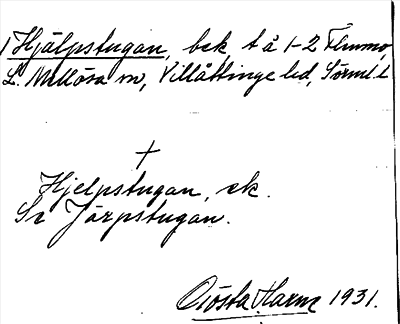 Hjälpstugan, bek t å 1-2 Flinmo,
L. Mellösa sn, Villåttinge hd, Sörml. l
+
Hjelpstugan, ek.
Se Järpstugan.
Gösta Harm 1931.